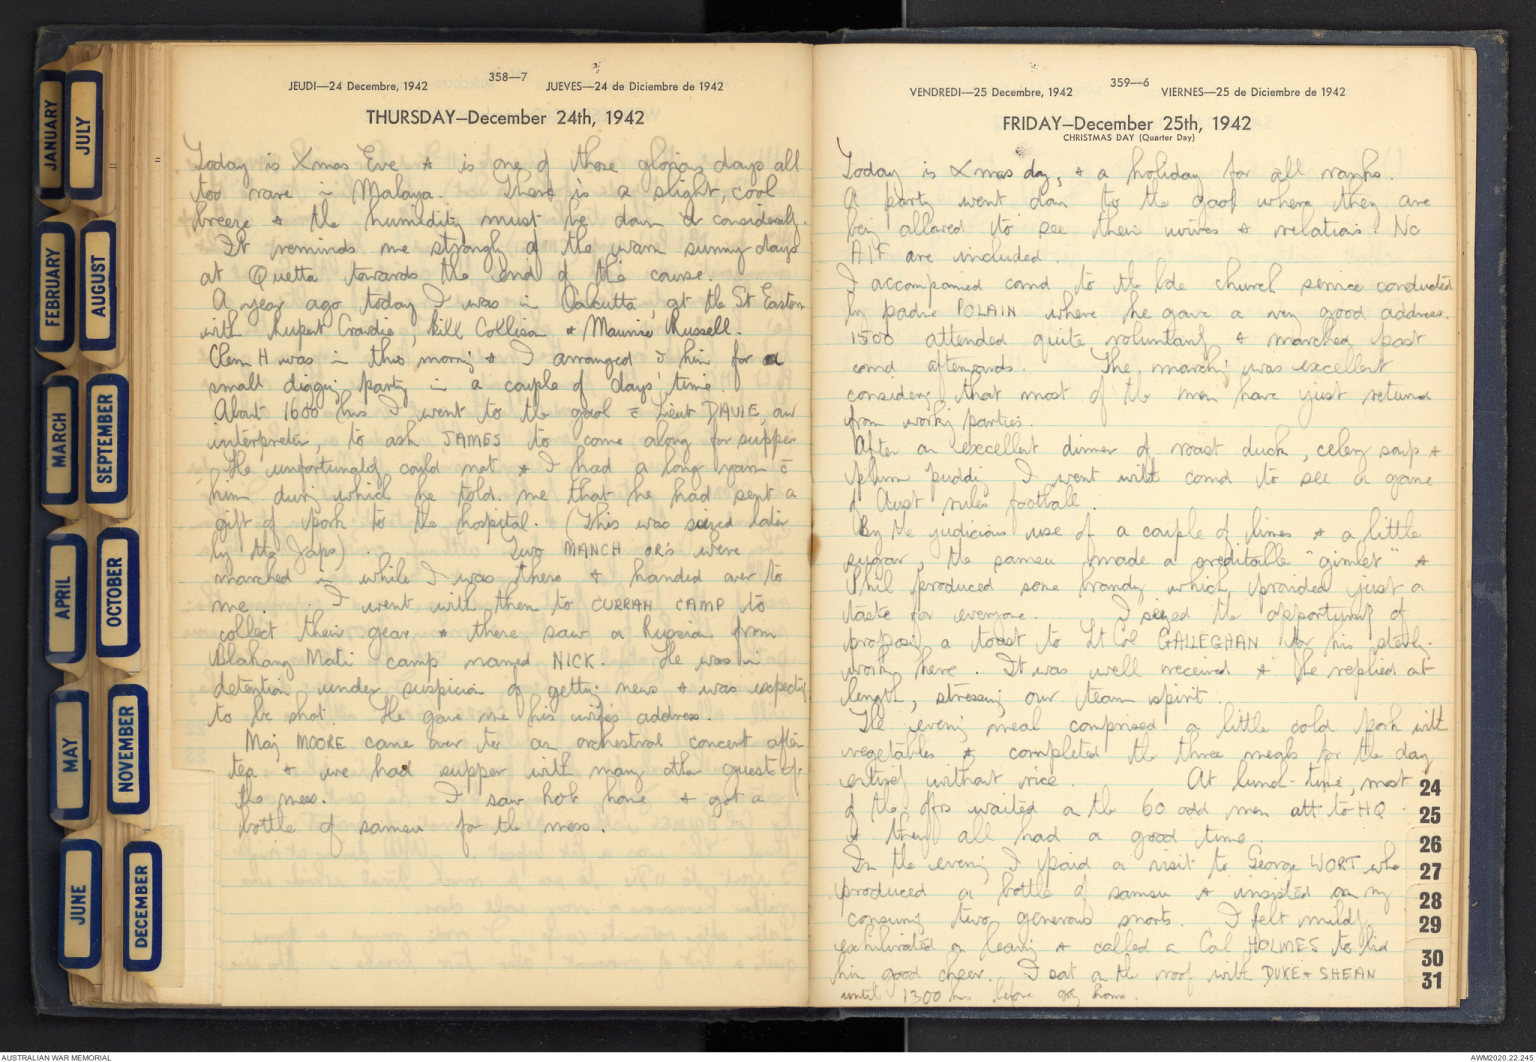 JANUARY
JULY
FEBRUARY
AUGUST
MARCH
SEPTEMBER
APRIL
OCTOBER
MAY
NOVEMBER
JUNE
DECEMBER
358—7
JEUDI—24 Decembre, 1942 JUEVES—24 de Diciembre de 1942
THURSDAY—December 24th, 1942
Today is Xmas Eve & is one of those glorious days all
too rare in Malaya. There is a slight, cool
breeze & the humidity must be down considerably.
It reminds me strongly of the warm sunny days
at Quetta towards the end of the course.
A year ago today I was in Calcutta, at the Gt Eastern
with Rupert, Bill Collison & Maurice Russell.
Clem H was in this morning & I arranged c him for a
small digging party in a couple of days' time.
About 1600 hrs I went to the gaol c Lieut DAVIE, our
interpreter, to ask JAMES to come along for supper
He unfortunately could not & I had a long yarn c
him during which he told me that he had sent a
gift of pork to the hospital. (This was seized later
by the Japs). Two MANCH OR's were
marched in while I was there & handed over to
me. I went with them to CURRAN CAMP to
collect their gear & there saw a Russian from
Blakang Mati camp named NICK. He was in
detention under suspicion of getting news & was expecting
to be shot. He gave me his wife's address.
Maj MOORE came over to an orchestral concert after
tea & we had supper with many other guests of
the mess. I saw Bob home & got a
bottle of samsu for the mess.
359—6
VENDREDI—25 Decembre, 1942 VIERNES—25 de Diciembre de 1942
FRIDAY—December 25th, 1942
CHRISTMAS DAY (Quarter Day)
Today is Xmas day, & a holiday for all ranks.
A party went down to the gaol where they are
being allowed to see their wives & relations. No
AIF are included.
I accompanied comd to the bde church service conducted
by padre POLAIN where he gave a very good address.
1500 attended quite voluntarily & marched past
comd afterwards. The marching was excellent
considering that most of the men have just returned
from working parties.
After an excellent dinner of roast duck, celery soup &
plum pudding I went with comd to see a game
of Aust rules football.
By the judicious use of a couple of limes & a little
sugar, the samsu made a creditable "gimlet" &
Phil produced some brandy which provided just a
taste for everyone. I seized the opportunity of
proposing a toast to Lt Col GALLEGHAN for his sterling
work here. It was well received & he replied at
length, stressing our team spirit.
The evening meal comprised a little cold pork with
vegetables & completed the three meals for the day
entirely without rice. At lunch-time, most
of the offrs waited on the 60 odd men att to HQ
& they all had a good time.
In the evening I paid a visit to George WORT who
produced a bottle of samsu & insisted on my
consuming two generous snorts. I felt mildly
exhilirated on leaving & called on Col HOLMES to bid
him good cheer. I sat on the roof with DUKE & SHEAN
until 1300 hrs before going home.
24
25
26
27
28
29
30
31
AUSTRALIAN WAR MEMORIAL
AWM2020.22.245